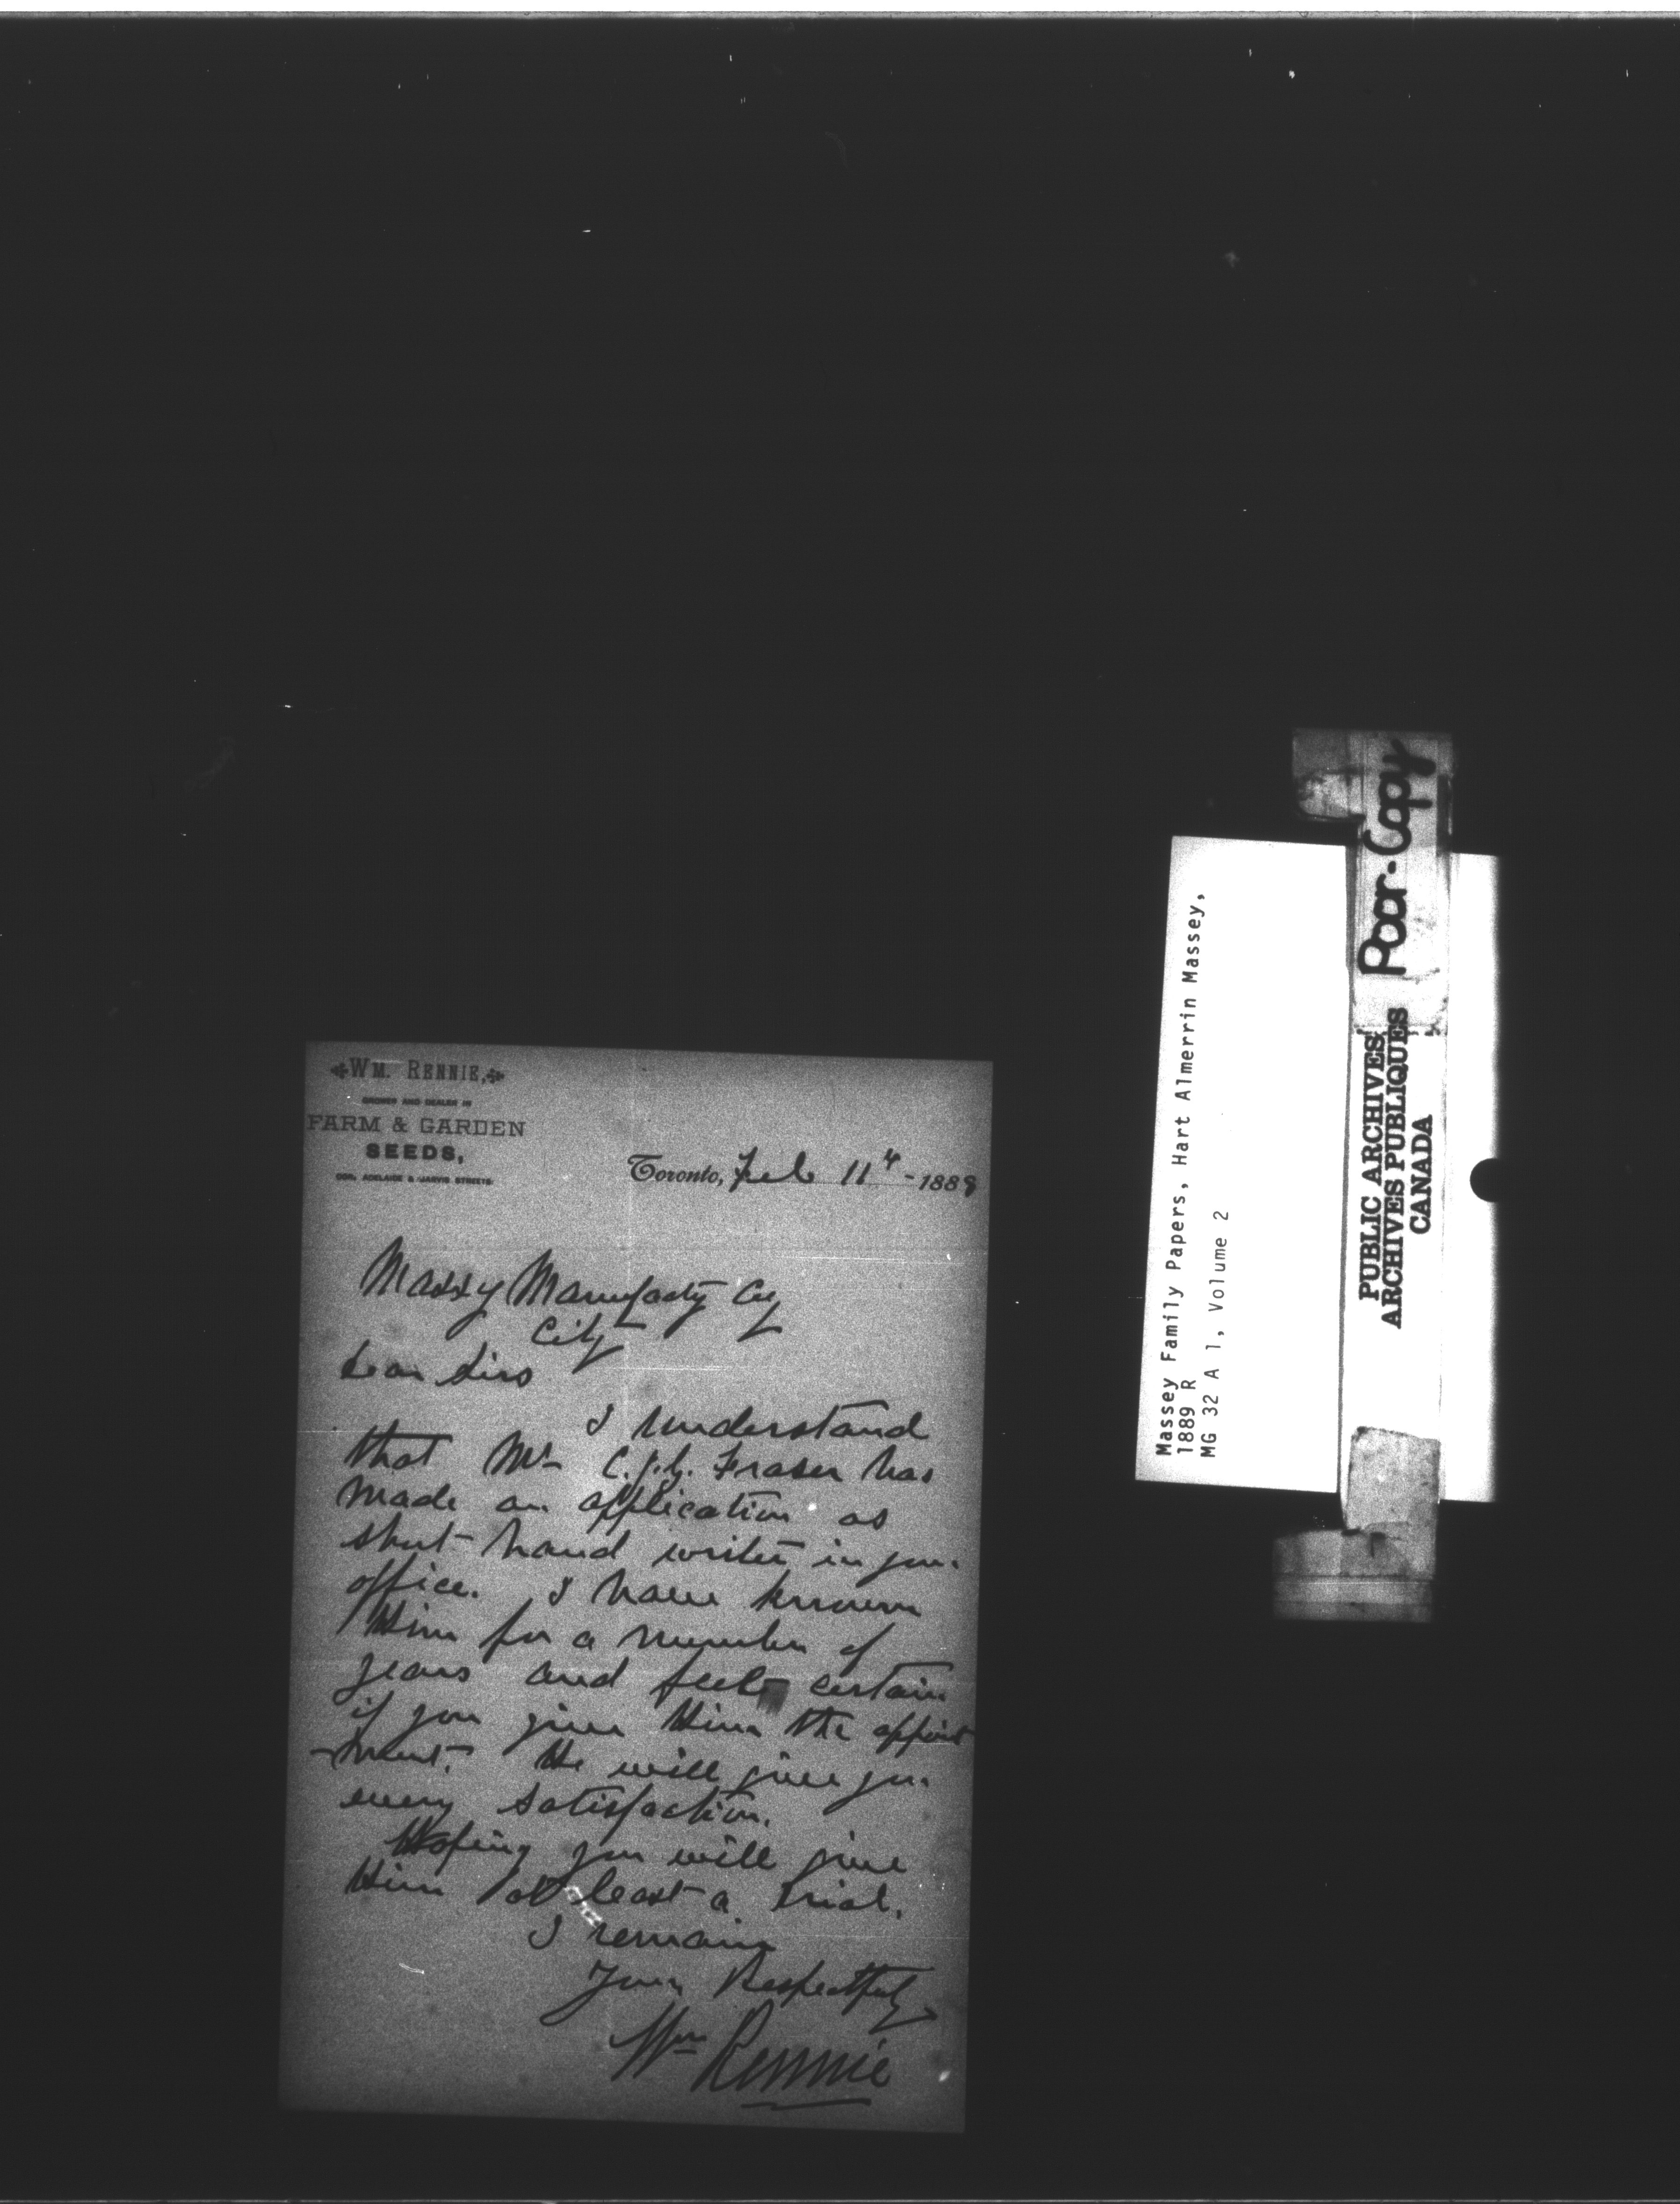 WM. RENNIE,
GROWER AND DEALER IN
FARM & GARDEN
SEEDS,
COR. ADELAIDE & JARVIS STREETS.
Toronto, Feb 11th - 1889
Massy Manufacty Co
City
Dear Sirs
I understand
that Mr C.J.G. Fraser has
made an application as
short-hand writer in your
office. I have known
Him for a number of
years and feel certain
if you give Him the appoint
-ment. He will give you
every satisfaction.
Hoping you will give
Him at least a trial.
I remain
Yours Respectfully
Wm Rennie
Massey Family Papers, Hart Almerrin Massey,
1889 R
MG 32 A 1, Volume 2
Poor-Copy
PUBLIC ARCHIVES
ARCHIVES PUBLIQUES
CANADA